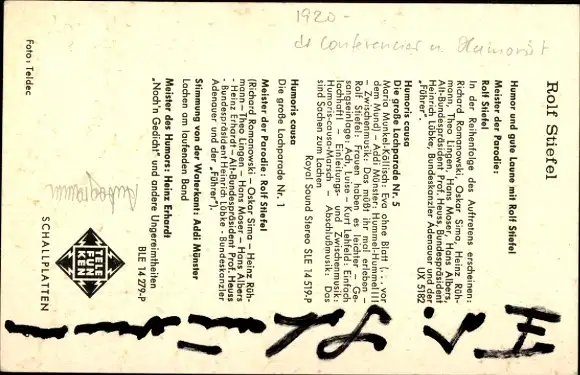 1920 -
Conferencier u. Humorist
Rolf Stiefel
Humor und gute Laune mit Rolf Stiefel
Meister der Parodie:
Rolf Stiefel
In der Reihenfolge des Auftretens erscheinen:
Richard Romanowski, Oskar Sima, Heinz Rüh-
mann, Theo Lingen, Hans Moser, Hans Albers,
Alt-Bundespräsident Prof. Heuss, Bundespräsident
Heinrich Lübke, Bundeskanzler Adenauer und der
„Führer“. UX 5182
Humoris causa
Die große Lachparade Nr. 5
Maria Munkel-Källisch: Eva ohne Blatt (. . . vor
dem Mund) - Addi Münster: Hummel-Hummel!!!
- Zwischenmusik: Das müßt ihr mal erleben -
Rolf Stiefel: Frauen haben es leichter - Ge-
sangseinlage: Ach, Luise - Kurt Lehfeld: Einfach
lachhaft! - Einleitungs- und Zwischenmusik:
Humoris-causa-Marsch. Abschlußmusik: Das
sind Sachen zum Lachen
Royal Sound Stereo SLE 14 519-P
Humoris causa
Die große Lachparade Nr. 1
Meister der Parodie: Rolf Stiefel
(Richard Romanowski - Oskar Sima - Heinz Rüh-
mann - Theo Lingen - Hans Moser - Hans Albers
- Heinz Erhardt - Alt-Bundespräsident Prof. Heuss
- Bundespräsident Heinrich Lübke - Bundeskanzler
Adenauer und der „Führer“).
Stimmung von der Waterkant: Addi Münster
Lachen am laufenden Band
Meister des Humors: Heinz Erhardt
„Noch'n Gedicht“ und andere Ungereimtheiten
BLE 14 279-P
TELE
FUN
KEN
SCHALLPLATTEN
Foto: Teldec